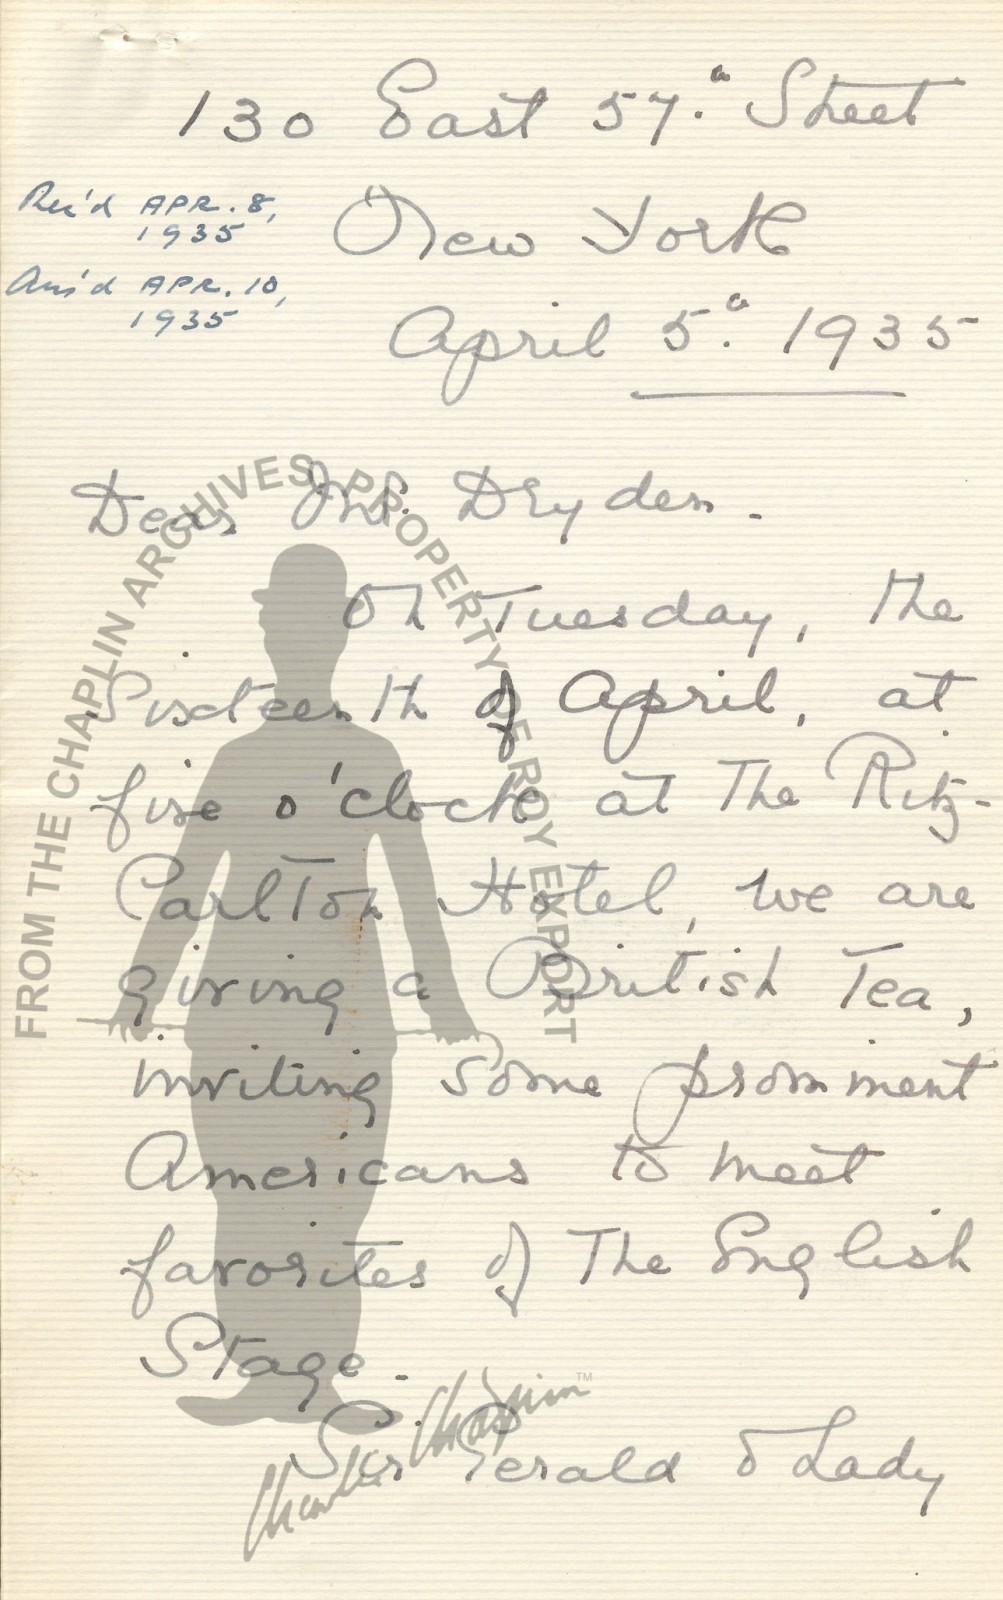 130 East 57.a Street
Rec'd APR. 8,
1935
New York
Ans'd APR. 10,
1935
April 5.a 1935
Dear Mr. Dryden.
On Tuesday, the
Sixteenth of April, at
five o'clock at The Ritz-
Carlton Hotel, we are
giving a British Tea,
inviting some prominent
Americans to meet
favorites of The English
Stage.
Sir Gerald & Lady
FROM THE CHAPLIN ARCHIVES, PROPERTY OF ROY EXPORT
Charlie Chaplin™